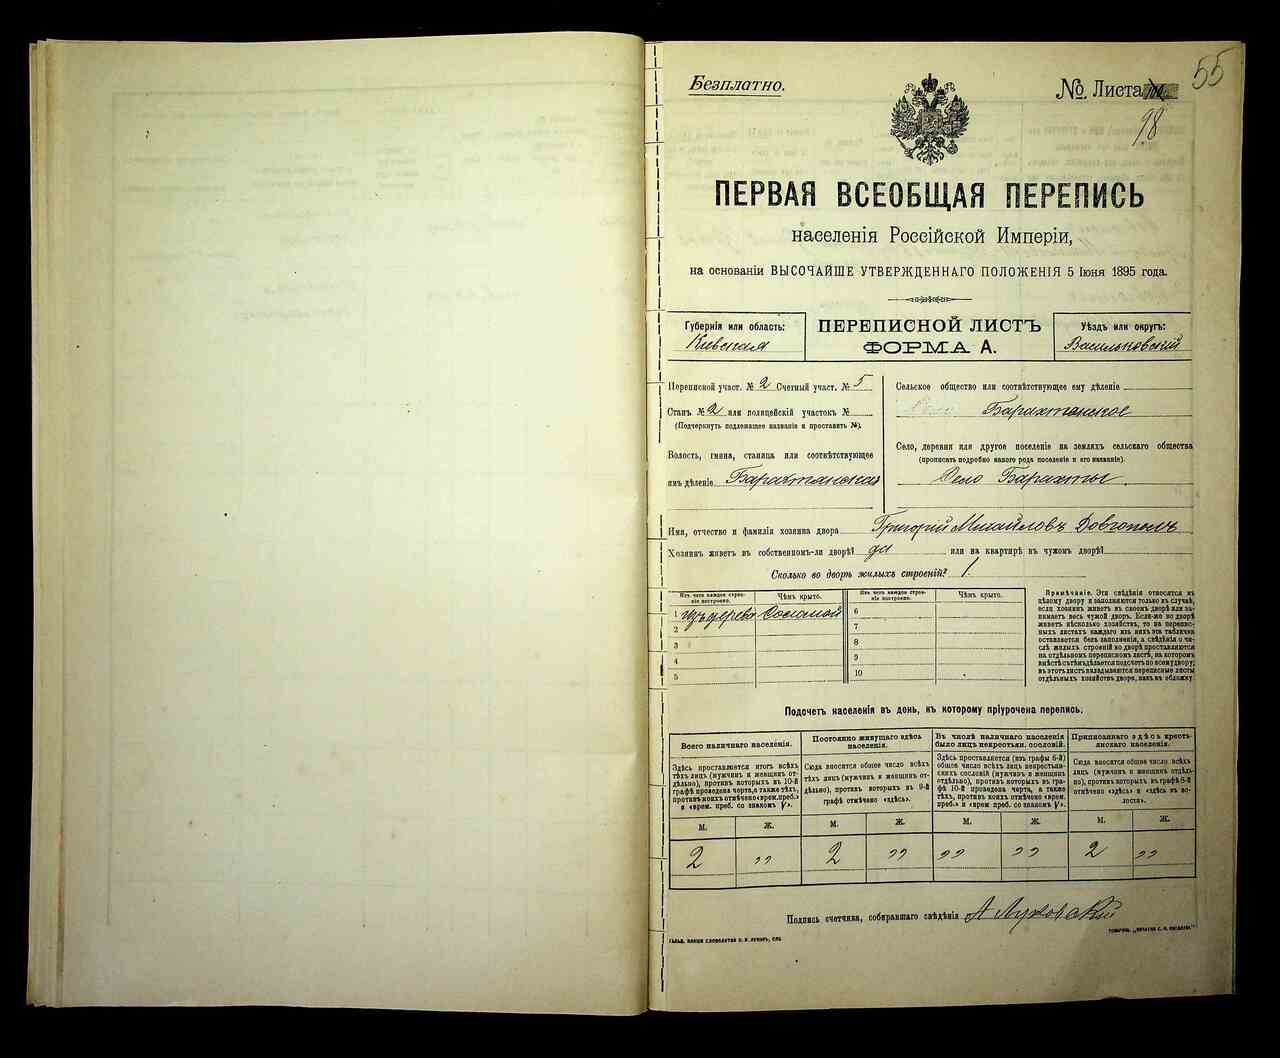 55
Безплатно.
№ Листа
98
ПЕРВАЯ ВСЕОБЩАЯ ПЕРЕПИСЬ
населенія Россійской Имперіи,
на основаніи ВЫСОЧАЙШЕ УТВЕРЖДЕННАГО ПОЛОЖЕНІЯ 5 Іюня 1895 года.
Губернія или область:
Кіевская
ПЕРЕПИСНОЙ ЛИСТЪ
ФОРМА А.
Уѣздъ или округъ:
Васильковскій
Переписной участ. № 2 Счетный участ. № 5
Станъ № 2 или полицейскій участокъ №
(Подчеркнуть подлежащее названіе и проставить №).
Волость, гмина, станица или соотвѣтствующее
имъ дѣленіе Барахтянская
Сельское общество или соотвѣтствующее ему дѣленіе
Село Барахтянское
Село, деревня или другое поселеніе на земляхъ сельскаго общества
(прописать подробно какого рода поселеніе и его названіе).
Село Барахты.
Имя, отчество и фамилія хозяина двора Григорій Михайловъ Довгополъ
Хозяинъ живетъ въ собственномъ-ли дворѣ? да или на квартирѣ въ чужомъ дворѣ?
Сколько во дворѣ жилыхъ строеній? 1.
Изъ чего каждое строеніе построено.
Чѣмъ крыто.
Изъ чего каждое строеніе построено.
Чѣмъ крыто.
1 Изъ дерева Соломой 6
2 7
3 8
4 9
5 10
Примѣчаніе. Эти свѣдѣнія относятся къ
цѣлому двору и заполняются только въ случаѣ,
если хозяинъ живетъ въ своемъ дворѣ или занимаетъ
весь чужой дворъ. Если-же во дворѣ
живетъ нѣсколько хозяйствъ, то на переписныхъ
листахъ каждаго изъ нихъ эта табличка
оставляется безъ заполненія, а свѣдѣнія о числѣ
жилыхъ строеній во дворѣ проставляются
на отдѣльномъ переписномъ листѣ, на которомъ
вмѣстѣ съ тѣмъ дѣлается подсчетъ по всему двору;
въ этотъ листъ вкладываются переписные листы
отдѣльныхъ хозяйствъ двора, какъ въ обложку.
Подсчетъ населенія въ день, къ которому пріурочена перепись.
Всего наличнаго населенія.
Здѣсь проставляется итогъ всѣхъ
тѣхъ лицъ (мужчинъ и женщинъ отдѣльно),
противъ которыхъ въ 10-й
графѣ проведена черта, а также тѣхъ,
противъ коихъ отмѣчено «врем. преб.»
и «врем. преб. со знакомъ V».
Постоянно живущаго здѣсь
населенія.
Сюда вносится общее число всѣхъ
тѣхъ лицъ (мужчинъ и женщинъ отдѣльно),
противъ которыхъ въ 9-й
графѣ отмѣчено «здѣсь».
Въ числѣ наличнаго населенія
было лицъ некрестьян. сословій.
Здѣсь проставляется (въ графы 6-й)
общее число всѣхъ лицъ некрестьянскихъ
сословій (мужчинъ и женщинъ
отдѣльно), противъ которыхъ въ графѣ
10-й проведена черта, а также
тѣхъ, противъ коихъ отмѣчено «врем.
преб.» и «врем. преб. со знакомъ V».
Приписаннаго здѣсь крестьянскаго
населенія.
Сюда вносится общее число всѣхъ
лицъ (мужчинъ и женщинъ отдѣльно),
противъ которыхъ въ графѣ 8-й
отмѣчено «здѣсь» и «здѣсь въ волости».
М. Ж. М. Ж. М. Ж. М. Ж.
2 „ 2 „ „ „ 2 „
Подпись счетчика, собиравшаго свѣдѣнія А Луковскій